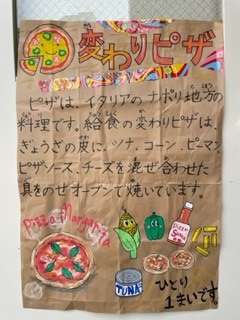 変わりピザ
ピザは、イタリアのナポリ地方の
料理です。給食の変わりピザは、
ぎょうざの皮に、ツナ、コーン、ピーマン、
ピザソース、チーズを混ぜ合わせた
具をのせオーブンで焼いています。
Pizza Margherita
PIZZA
SAUCE
TUNA
ひとり
1まいです